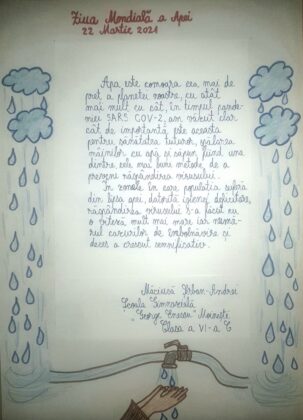 Ziua Mondială a Apei
22 Martie 2021
Apa este comoara cea mai de
preț a planetei noastre, cu atât
mai mult cu cât, în timpul pande-
miei SARS COV-2, am văzut clar
cât de importantă este aceasta
pentru sănătatea tuturor, spălarea
mâinilor cu apă și săpun fiind una
dintre cele mai bune metode de a
preveni răspândirea virusului.
În zonele în care populația suferă
din lipsa apei, datorită igienei deficitare,
răspândirea virusului s-a făcut cu
o viteză mult mai mare iar numă-
rul cazurilor de îmbolnăvire și
deces a crescut semnificativ.
Măciucă Șerban-Andrei
Școala Gimnazială
"George Enescu" Moinești
Clasa a VI-a C